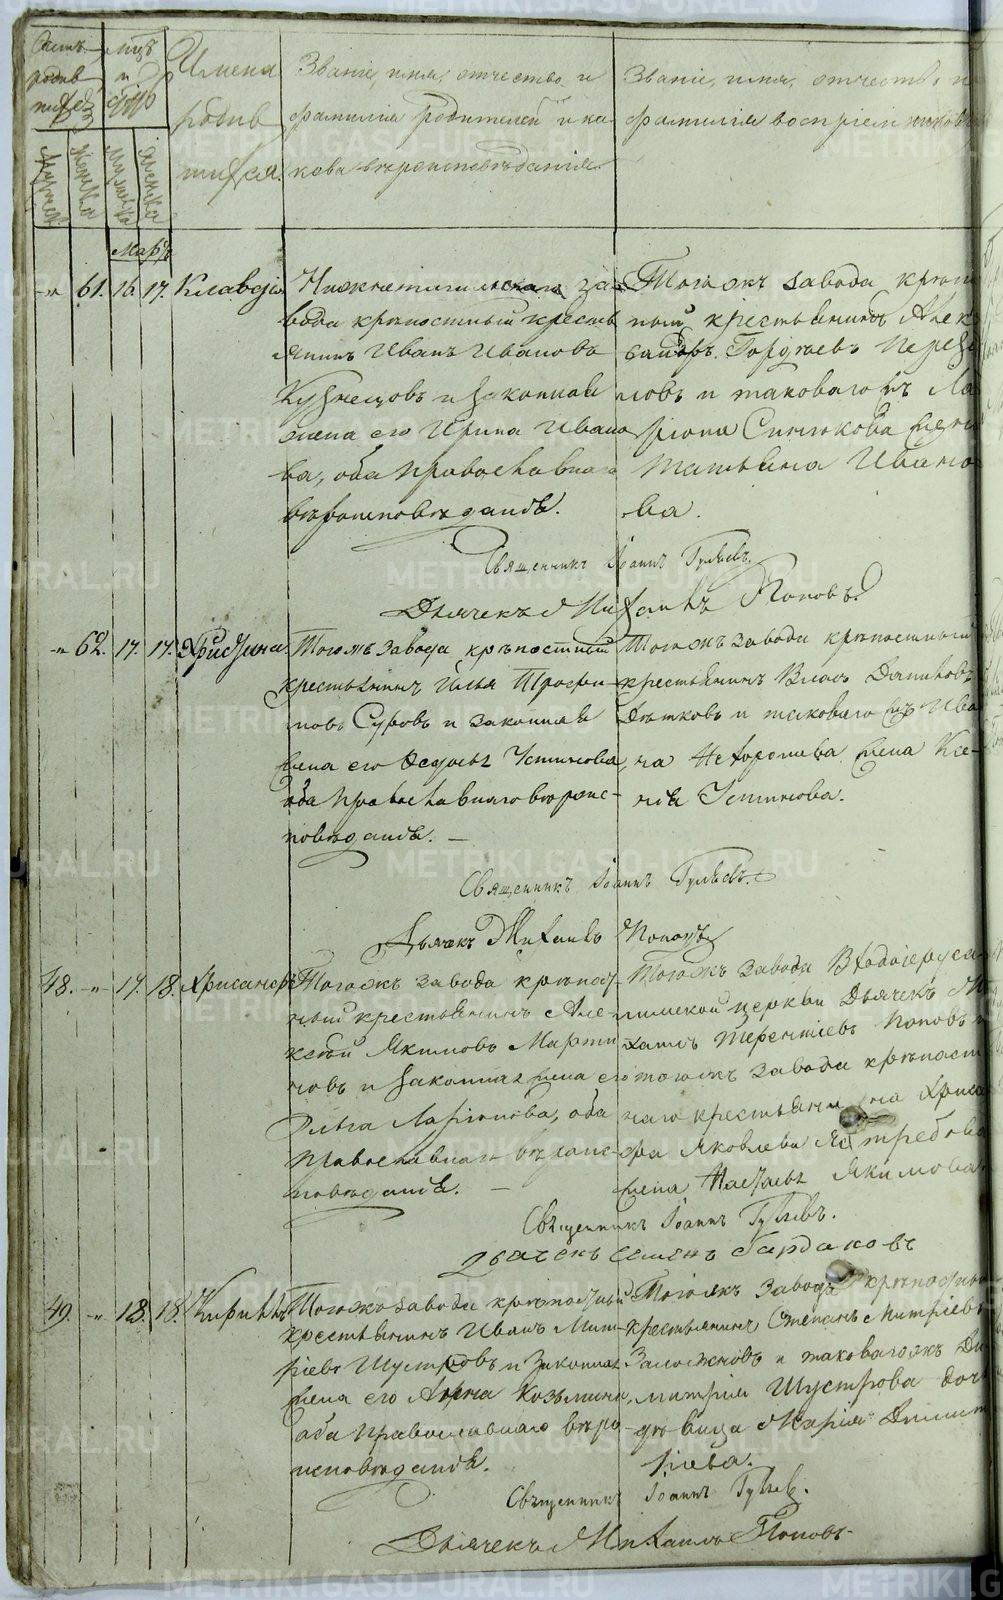 Счетъ родив шихся
мцъ и день
Имена родив шихся.
Званіе, имя, отчество и фамилія родителей и ка кова вѣроисповѣданія.
Званіе, имя, отчество и фамилія воспріемниковъ
Мужеска Женска рожденія крещенія
Мартъ
" 61. 16. 17. Клавдія
Нижнетагильскаго за
вода крѣпостный кресть
янинъ Иванъ Ивановъ
Кузнецовъ и законная
жена его Ирина Ивано
ва, оба православнаго
вѣроисповѣданія.
Тогожъ завода крѣпос
ный крестьянинъ Алек
сандръ Гордѣевъ
ловъ и таковагожъ Ла
ріона Синюкова жена
Татьяна Ивано
ва.
Священникъ Іоаннъ Гуляевъ.
Дьячекъ Михаилъ Поповъ.
" 62. 17. 17. Христина
Тогожъ завода крѣпостный
крестьянинъ Илья Трофи-
мовъ Суровъ и законная
жена его Ѳедосья Устинова,
оба православнаго вѣроис-
повѣданія.
Тогожъ завода крѣпостный
крестьянинъ Власъ Даниловъ
Дьтковъ и таковагожъ Ива
на жена Ксе-
нія Устинова.
Священникъ Іоаннъ Гуляевъ.
Дьячекъ Михаилъ Поповъ
48. " 17. 18. Хрисанѳъ
Тогожъ завода крѣпост
ный крестьянинъ Але-
ксѣй Якимовъ Марти
новъ и законная жена его
Ольга Ларіонова, оба
православнаго вѣроис-
повѣданія.
Тогожъ завода Входоіеруса-
лимской церкви Дьячекъ Ми
хаилъ Терентіевъ Поповъ и
тогожъ завода крѣпост
наго крестьянина Хриса
нѳа Яковлева Ястребова
жена Настасья Якимова.
Священникъ Іоаннъ Гуляевъ.
Дьячекъ Семенъ Гардаковъ
49. " 18. 18. Кириллъ
Тогожъ завода крѣпостный
крестьянинъ Иванъ Мит-
ріевъ Шустровъ и законная
жена его Анна Козьмина,
оба православнаго вѣро-
исповѣданія.
Тогожъ завода крѣпостный
крестьянинъ Степанъ Митріевъ
Заложновъ и таковагожъ Ди
митрія Шустрова дочь
дѣвица Марія Димит
ріева.
Священникъ Іоаннъ Гуляевъ.
Дьячекъ Михаилъ Поповъ
METRIKI.GASO-URAL.RU